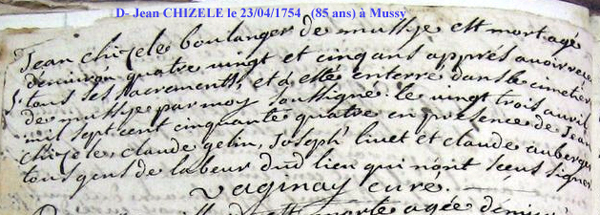 D- Jean CHIZELE le 23/04/1754 , (85 ans) à Mussy
Jean chizele boulanger de mussye est mort agé
d'environ quatre vingt et cinq ans apprés avoir receu
tous ses sacrements, et a esté enterre dans le cimetiere
de mussye par moy soussigné le vingt trois avril
mil sept cent cinquante quatre en presence de Jean
chizele claude gelin, Joseph livet et claude auberger
tous gens de labeur dud lieu qui n'ont sceu signer
Vaginay cure.
morte agée d'environ